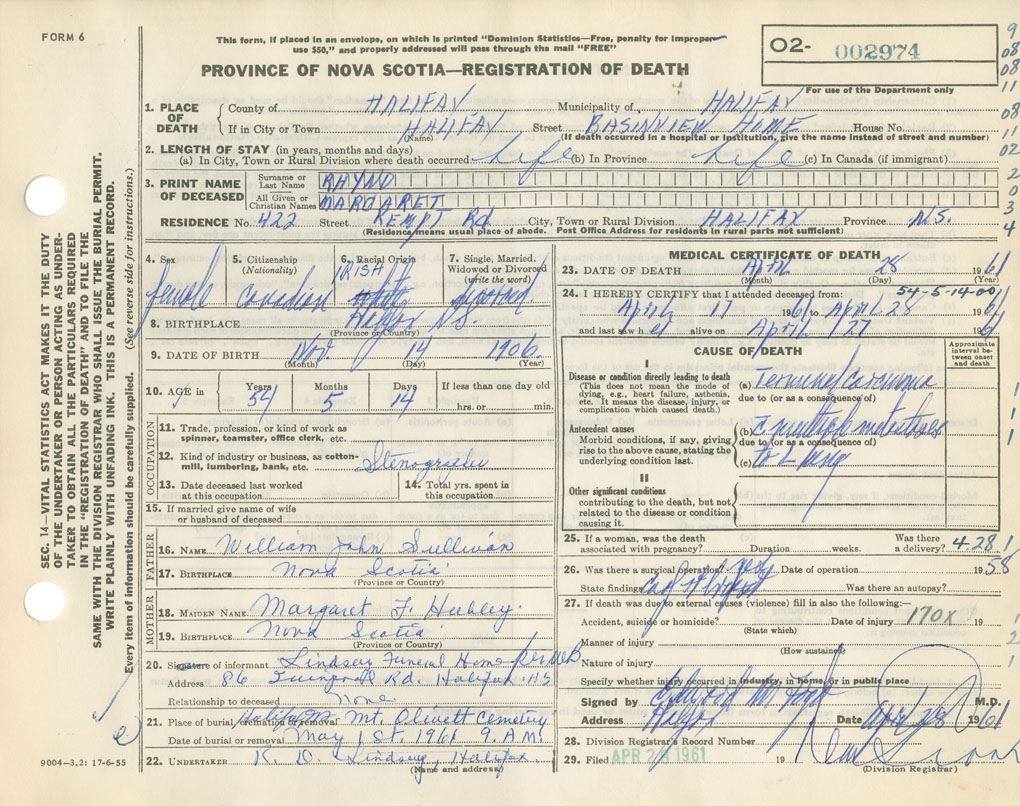 FORM 6
This form, if placed in an envelope, on which is printed "Dominion Statistics—Free, penalty for improper
use $50," and properly addressed will pass through the mail "FREE"
02- 002974
For use of the Department only
PROVINCE OF NOVA SCOTIA—REGISTRATION OF DEATH
1. PLACE OF DEATH
County of HALIFAX Municipality of HALIFAX
If in City or Town HALIFAX Street BASINVIEW HOME House No.
(Name) (If death occurred in a hospital or institution, give the name instead of street and number)
2. LENGTH OF STAY (in years, months and days)
(a) In City, Town or Rural Division where death occurred Life (b) In Province Life (c) In Canada (if immigrant)
3. PRINT NAME OF DECEASED
Surname or Last Name RHYND
All Given or Christian Names MARGARET
RESIDENCE No. 422 Street KEMPT Rd City, Town or Rural Division HALIFAX Province N.S.
(Residence means usual place of abode. Post Office Address for residents in rural parts not sufficient)
4. Sex female
5. Citizenship (Nationality) Canadian
6. Racial Origin IRISH White
7. Single, Married, Widowed or Divorced (write the word)
8. BIRTHPLACE Halifax N.S.
(Province or Country)
9. DATE OF BIRTH Nov. 14 1906.
(Month) (Day) (Year)
10. AGE in Years 54 Months 5 Days 14 If less than one day old
hrs. or min.
OCCUPATION
11. Trade, profession, or kind of work as spinner, teamster, office clerk, etc.
12. Kind of industry or business, as cotton-mill, lumbering, bank, etc. Stenographer
13. Date deceased last worked at this occupation
14. Total yrs. spent in this occupation
15. If married give name of wife or husband of deceased
FATHER
16. NAME William John Sullivan
17. BIRTHPLACE Nova Scotia
(Province or Country)
MOTHER
18. MAIDEN NAME Margaret F. Hubley.
19. BIRTHPLACE Nova Scotia
(Province or Country)
20. Signature of informant Lindsay Funeral Home per
Address 86 Quinpool Rd. Halifax NS
Relationship to deceased None
21. Place of burial, cremation or removal Mt. Olivett Cemetry
Date of burial or removal May 1st. 1961 9. A.M.
22. UNDERTAKER K. D. Lindsay, Halifax.
(Name and address)
MEDICAL CERTIFICATE OF DEATH
23. DATE OF DEATH April 28 1961
(Month) (Day) (Year)
54-5-14-00
24. I HEREBY CERTIFY that I attended deceased from:
April 17 1961 to April 28 1961
and last saw her alive on April 27 1961
CAUSE OF DEATH
Approximate interval between onset and death
I
Disease or condition directly leading to death
(This does not mean the mode of dying, e.g., heart failure, asthenia, etc. It means the disease, injury, or complication which caused death.)
(a) Terminal carcinoma
due to (or as a consequence of)
Antecedent causes
Morbid conditions, if any, giving rise to the above cause, stating the underlying condition last.
(b) c multiple metastases
due to (or as a consequence of)
(c) to Lung
II
Other significant conditions
contributing to the death, but not related to the disease or condition causing it.
25. If a woman, was the death associated with pregnancy? Duration weeks. Was there a delivery? 4-28
26. Was there a surgical operation? yes Date of operation 1958
State findings Ca of breast Was there an autopsy?
27. If death was due to external causes (violence) fill in also the following:—
Accident, suicide or homicide? Date of injury 170X 19
(State which)
Manner of injury
(How sustained)
Nature of injury
Specify whether injury occurred in industry, in home, or in public place
Signed by M.D.
Address Halifax Date April 28 1961
28. Division Registrar's Record Number
29. Filed APR 28 1961 19
(Division Registrar)
SEC. 14—VITAL STATISTICS ACT MAKES IT THE DUTY
OF THE UNDERTAKER OR PERSON ACTING AS UNDER-
TAKER TO OBTAIN ALL THE PARTICULARS REQUIRED
IN THE "REGISTRATION OF DEATH" AND TO FILE THE
SAME WITH THE DIVISION REGISTRAR WHO SHALL ISSUE THE BURIAL PERMIT.
WRITE PLAINLY WITH UNFADING INK. THIS IS A PERMANENT RECORD.
Every item of information should be carefully supplied. (See reverse side for instructions.)
9004-3.2: 17-6-55
9
08
08
11
08
11
02
2
0
3
4